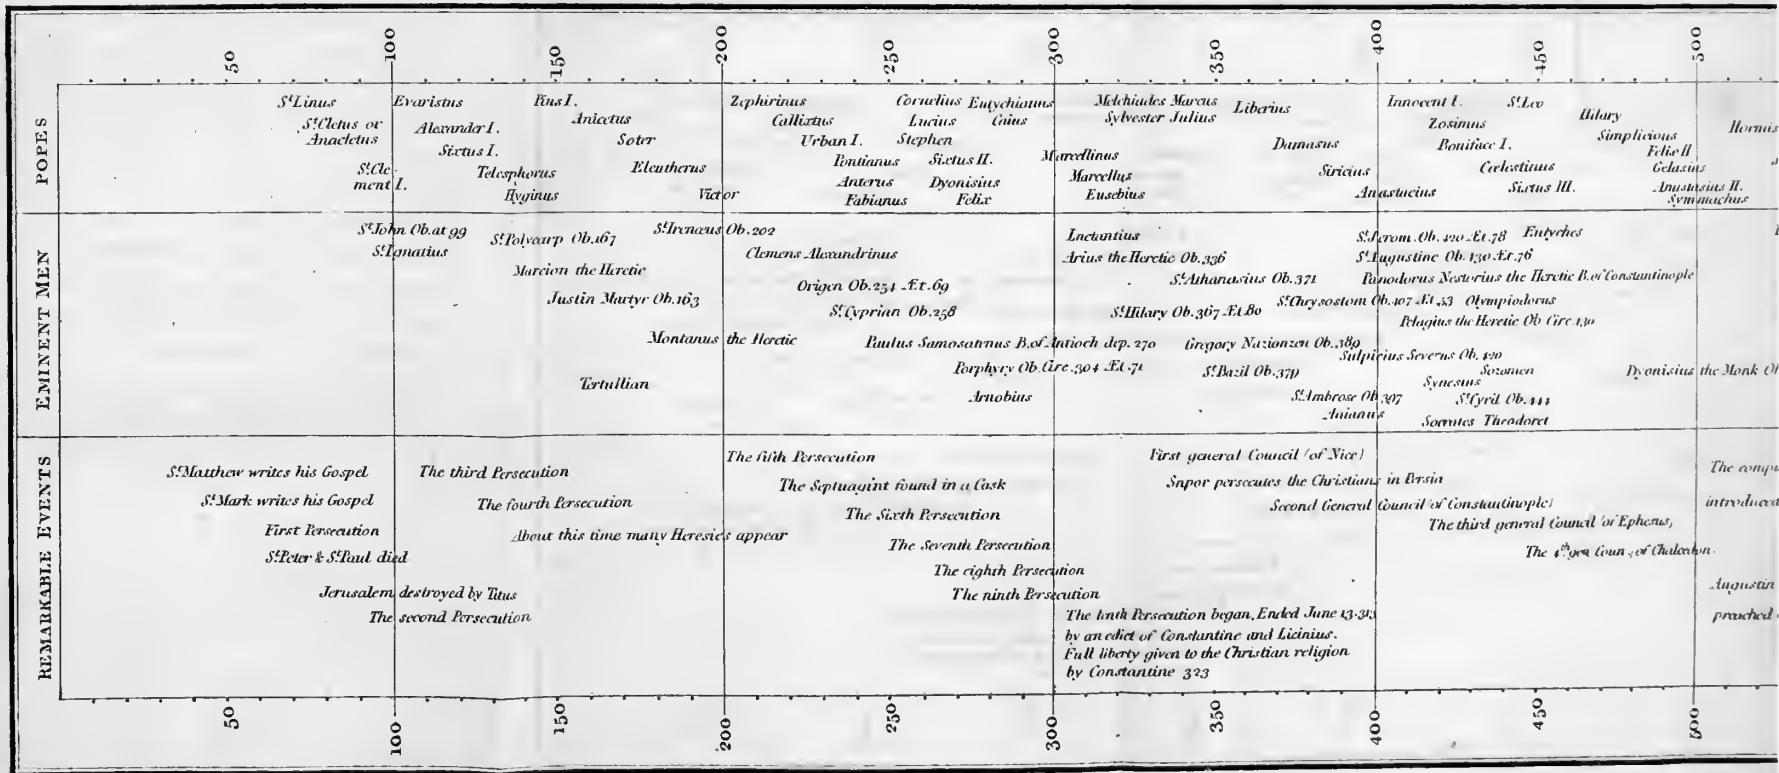 50 100 150 200 250 300 350 400 450 500
POPES
St Linus
St Cletus or
Anacletus
St Cle-
ment I.
Evaristus
Alexander I.
Sixtus I.
Telesphorus
Hyginus
Pius I.
Anicetus
Soter
Eleutherus
Victor
Zephirinus
Callixtus
Urban I.
Pontianus
Anterus
Fabianus
Cornelius
Lucius
Stephen
Sixtus II.
Dyonisius
Felix
Eutychianus
Caius
Marcellinus
Marcellus
Eusebius
Melchiades Marcus
Sylvester Julius
Liberius
Damasus
Siricius
Anastacius
Innocent I.
Zosimus
Boniface I.
Cœlestinus
Sixtus III.
St Leo
Hilary
Simplicious
Felix II
Gelasius
Anastasius II.
Symmachus
Hormis
EMINENT MEN
St John Ob. at 99
St Ignatius
St Polycarp Ob. 167
Marcion the Heretic
Justin Martyr Ob. 163
St Irenœus Ob. 202
Montanus the Heretic
Tertullian
Clemens Alexandrinus
Origen Ob. 254 Æt. 69
St Cyprian Ob. 258
Paulus Samosatenus B. of Antioch dep. 270
Porphyry Ob. Circ. 304 Æt. 71
Arnobius
Lactantius
Arius the Heretic Ob. 336
St Athanasius Ob. 371
St Hilary Ob. 367 Æt. 80
Gregory Nazionzen Ob. 389
St Bazil Ob. 379
St Ambrose Ob. 397
Anianus
St Jerom. Ob. 420 Æt. 78
St Augustine Ob. 430 Æt. 76
Panodorus Nestorius the Heretic B. of Constantinople
St Chrysostom Ob. 407 Æt. 53 Olympiodorus
Pelagius the Heretic Ob Circ. 430
Sulpicius Severus Ob. 420
Sozomen
Synesius
St Cyril Ob. 444
Socrates Theodoret
Eutyches
Dyonisius the Monk O
REMARKABLE EVENTS
St Matthew writes his Gospel
St Mark writes his Gospel
First Persecution
St Peter & St Paul died
Jerusalem destroyed by Titus
The second Persecution
The third Persecution
The fourth Persecution
About this time many Heresies appear
The fifth Persecution
The Septuagint found in a Cask
The Sixth Persecution
The Seventh Persecution
The eighth Persecution
The ninth Persecution
The tenth Persecution began, Ended June 13. 313
by an edict of Constantine and Licinius.
Full liberty given to the Christian religion
by Constantine 323
First general Council (of Nice)
Sapor persecutes the Christians in Persia
Second General Council (of Constantinople)
The third general Council (of Ephesus)
The 4th gen Coun. of Chalcedon.
The compu
introduced
Augustin
preached
50 100 150 200 250 300 350 400 450 500